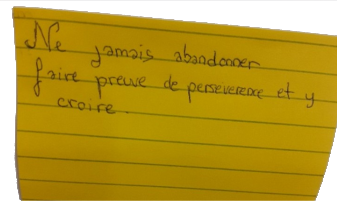 Ne jamais abandonner
faire preuve de perseverence et y
croire.